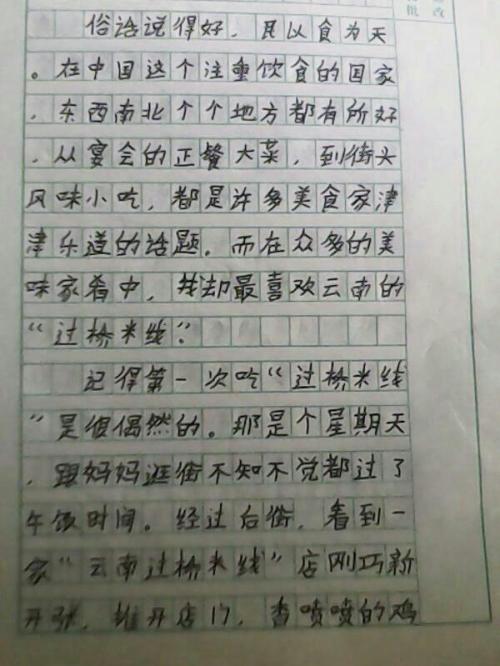 批 改
俗话说得好，民以食为天
。在中国这个注重饮食的国家
，东西南北个个地方都有所好
，从宴会的正餐大菜，到街头
风味小吃，都是许多美食家津
津乐道的话题。而在众多的美
味家肴中，我却最喜欢云南的
“过桥米线”。
记得第一次吃“过桥米线
”是很偶然的。那是个星期天
，跟妈妈逛街不知不觉都过了
午饭时间。经过后街，看到一
家“云南过桥米线”店刚巧新
开张，推开店门，香喷喷的鸡